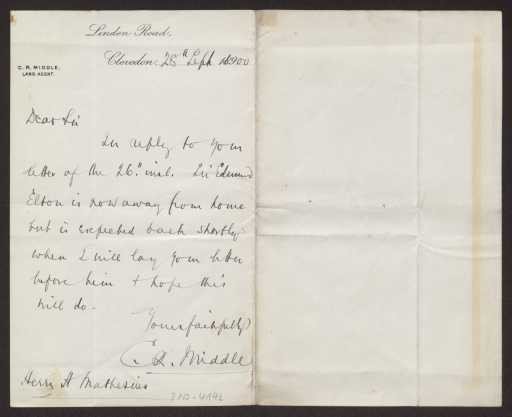 Linden Road,
Clevedon, 28th Sept 1900
C. R. MIDDLE,
LAND AGENT.
Dear Sir
In reply to your
letter of the 26th inst. Sir Edmund
Elton is now away from home
but is expected back shortly
when I will lay your letter
before him & hope this
will do.
Yours faithfully
C. R. Middle
Herrn H Mathesius